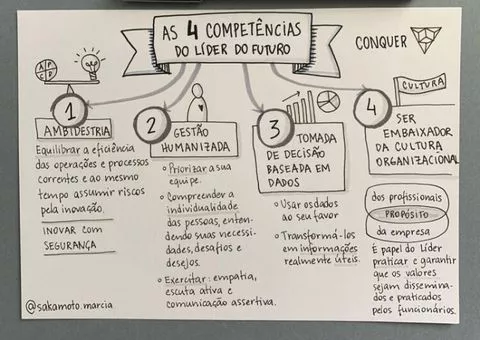 AS 4 COMPETÊNCIAS
DO LÍDER DO FUTURO
CONQUER
A P
C D
1
AMBIDESTRIA
Equilibrar a eficiência
das operações e processos
correntes e ao mesmo
tempo assumir riscos
pela inovação.
INOVAR COM
SEGURANÇA
2
GESTÃO
HUMANIZADA
Priorizar a sua
equipe.
Compreender a
individualidade
das pessoas, enten-
dendo suas necessi-
dades, desafios e
desejos.
Exercitar: empatia,
escuta ativa e
comunicação assertiva.
3
TOMADA
DE DECISÃO
BASEADA EM
DADOS
Usar os dados
ao seu favor
Transformá-los
em informações
realmente úteis.
4
CULTURA
SER
EMBAIXADOR
DA CULTURA
ORGANIZACIONAL
dos profissionais
PROPÓSITO
da empresa
É papel do líder
praticar e garantir
que os valores
sejam dissemina-
dos e praticados
pelos funcionários.
@sakamoto.marcia